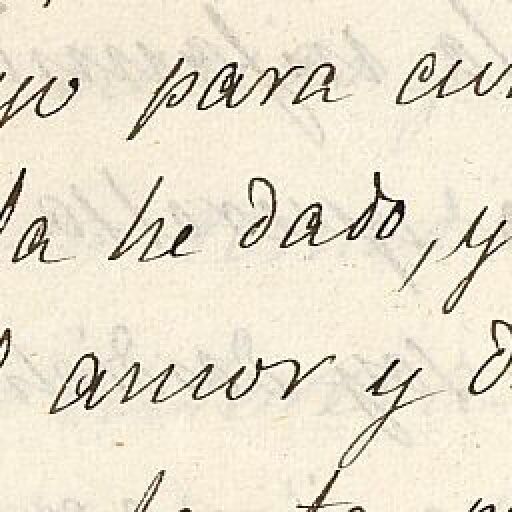 yo para cu
la he dado, y
amor y d